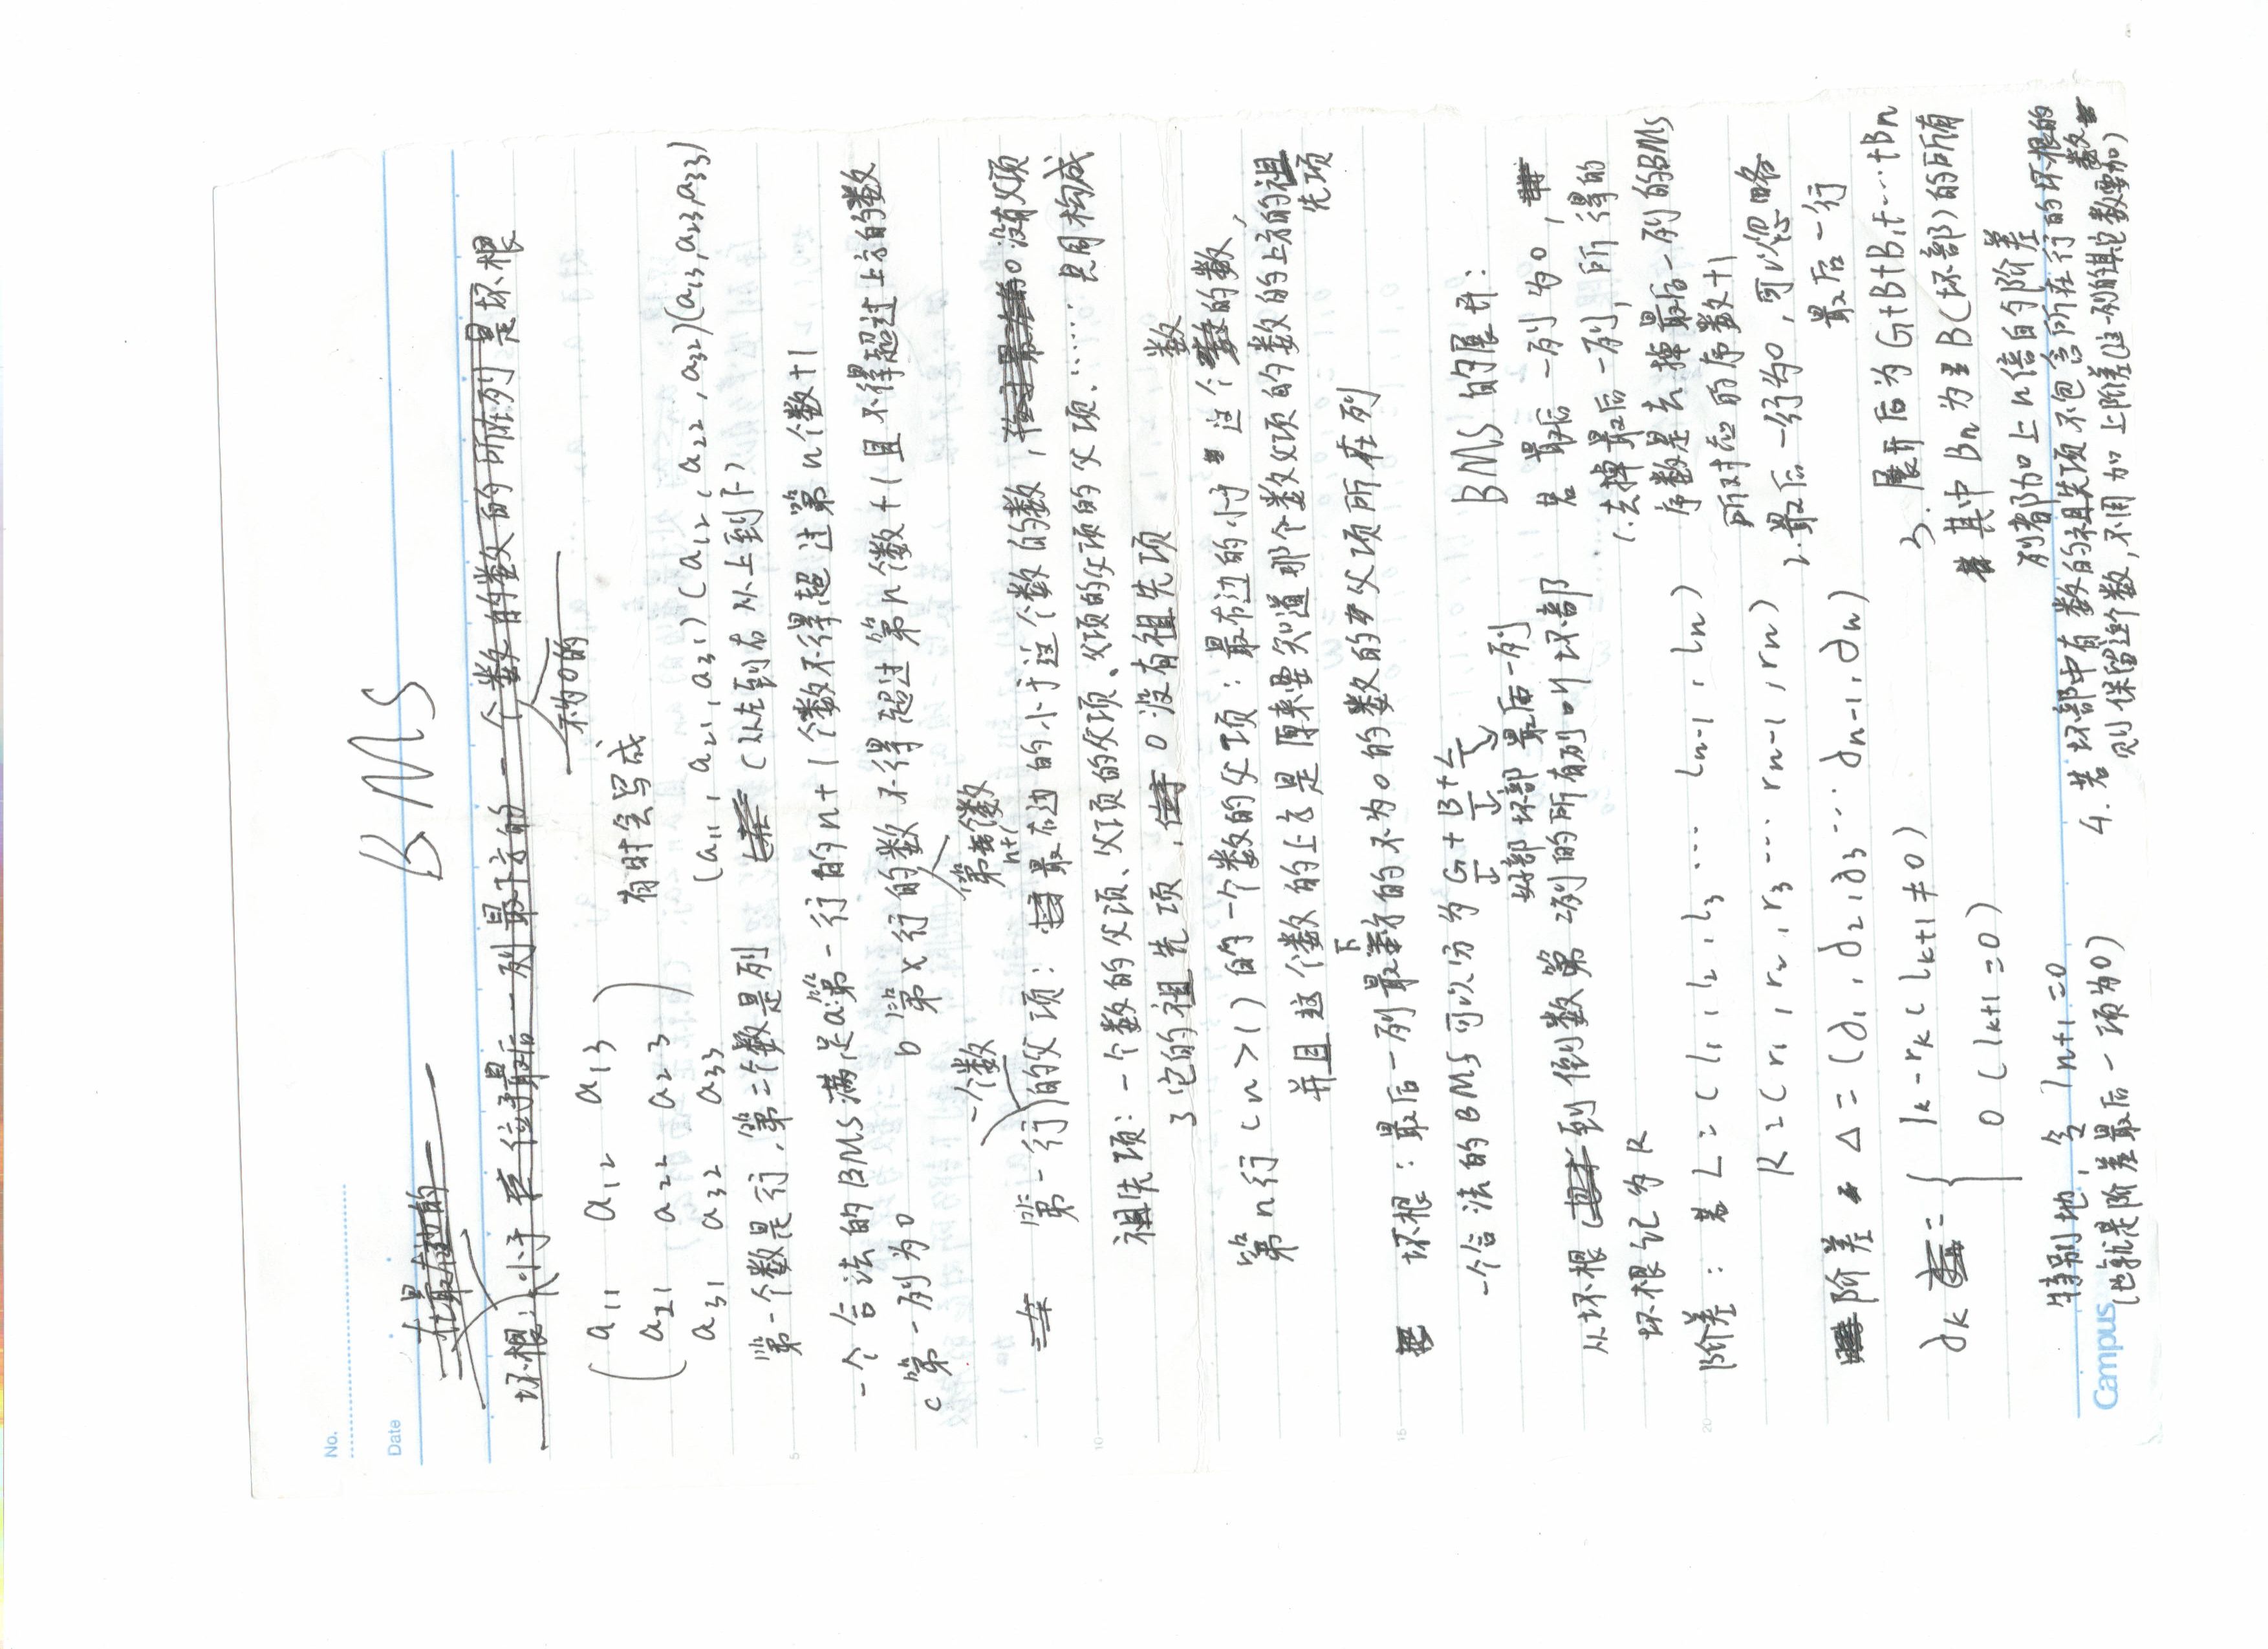 No.
Date
BMS
在最右边的
坏根:小于在位于最后一列最下方的一个数的数的所在列是坏根
不为0的
a11 a12 a13
a21 a22 a23
a31 a32 a33
有时会写成
(a11, a21, a31)(a12, a22, a32)(a13, a23, a33)
第一个数是行,第二个数是列 (从左到右从上到下)
一个合法的BMS满足a:第一行的n+1个数不得超过第n个数+1
b 第x行的数不得超过第n个数+1且不得超过上方的数
第n+1个数
c 第一列为0
一个数
第一行的父项:最右边的小于这个数的数,0没有父项
祖先项:一个数的父项、父项的父项、父项的父项的父项……共同构成
了它的祖先项,0没有祖先项
第n行(n>1)的一个数的父项:最右边的小于这个数的数,
并且这个数的上方是原来要知道那个数父项的数的上方的祖先项
坏根:最后一列最下方的不为0的数的父项所在列
一个合法的BMS可以分为G+B+L
好部 坏部 最后一列
从坏根到倒数第二列的所有列叫坏部
坏根记为R
阶差:若L=(l1, l2, l3 … ln-1, ln)
R=(r1, r2, r3 … rn-1, rn)
阶差Δ=(∂1, ∂2, ∂3 … ∂n-1, ∂n)
∂k = { lk-rk (lk+1≠0)
0 (lk+1=0)
特别地,令ln+1=0
(也就是阶差最后一项为0)
BMS的展开:
若最后一列为0,
1.去掉最后一列,所得的
序数是去掉最后一列的BMS
所对应的序数+1
2.最后一行为0,可以忽略
最后一行
3.展开后为G+B+B1+…+Bn
其中Bn为B(坏部)的所有
列都加上n倍的阶差
4.若坏部中有数的祖先项不包含所在行的坏根的数
则保留这个数,不用加上阶差(这一列的其它数要加)
5
10
15
20
Campus